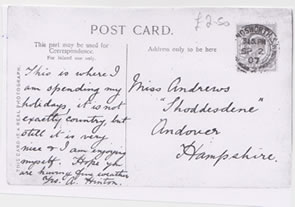 £2-50
POST CARD.
This part may be used for
Correspondence.
For inland use only.
Address only to be here
This is where I
am spending my
holidays, it is not
exactly country, but
still it is very
nice & I am enjoying
myself. Hope yh
are having fine weather
Yrs. A. Hinton.
Miss Andrews
"Shoddesdene"
Andover
Hampshire.
07
REAL PHOTOGRAPH.